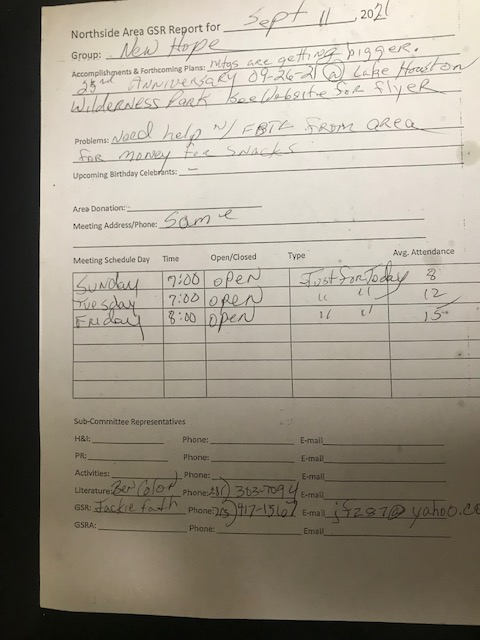 Northside Area GSR Report for Sept 11, 2021
Group: New Hope
Accomplishments & Forthcoming Plans: mtgs are getting bigger.
23rd Anniversary 09-26-21 @ Lake Houston
Wilderness Park See Website for flyer
Problems: Need help w/ FBTL From area
for money for snacks
Upcoming Birthday Celebrants: -
Area Donation:
Meeting Address/Phone: Same
Meeting Schedule Day Time Open/Closed Type Avg. Attendance
Sunday 7:00 open Just for Today 8
Tuesday 7:00 open " " 12
Friday 8:00 open " " 15
Sub-Committee Representatives
H&I: Phone: E-mail
PR: Phone: E-mail
Activities: Phone: E-mail
Literature: Ben Phone: 303-7094 E-mail
GSR: Jackie Phone: 417-1567 E-mail @yahoo.co
GSRA: Phone: Email